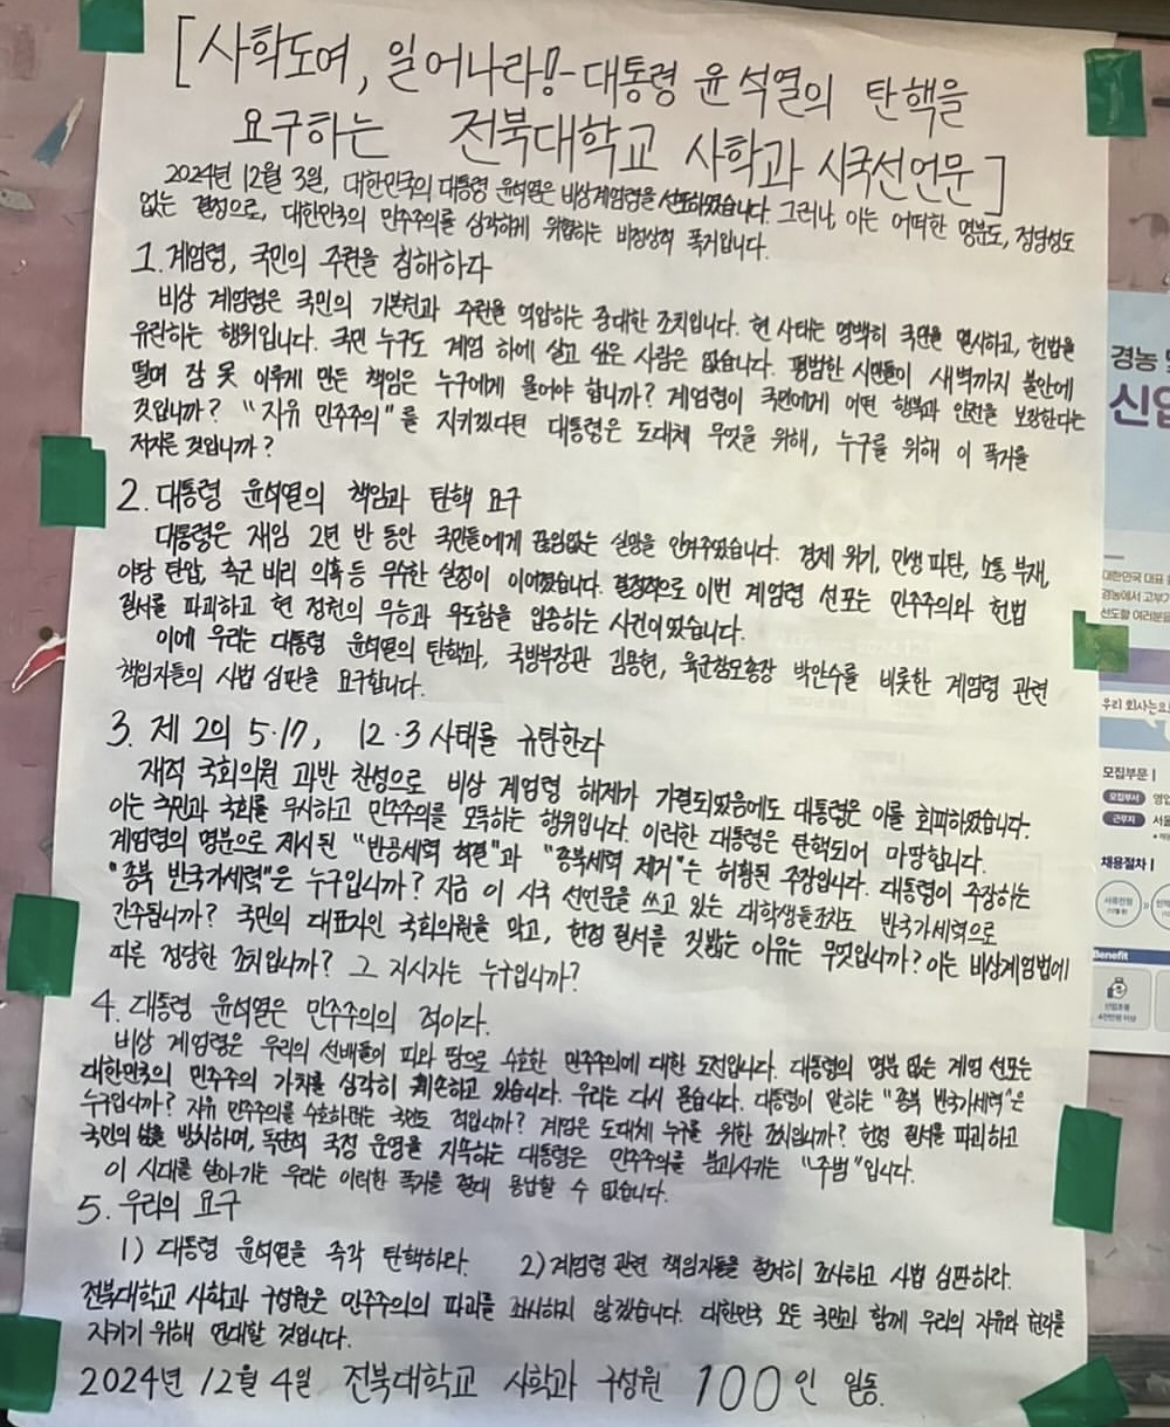 [사학도여, 일어나라! - 대통령 윤석열의 탄핵을
요구하는 전북대학교 사학과 시국선언문]
2024년 12월 3일, 대한민국의 대통령 윤석열은 비상계엄령을 선포하였습니다. 그러나, 이는 어떠한 명분도, 정당성도
없는 결정으로, 대한민국의 민주주의를 심각하게 위협하는 비정상적 폭거입니다.
1. 계엄령, 국민의 주권을 침해하다
비상 계엄령은 국민의 기본권과 주권을 억압하는 중대한 조치입니다. 현 사태는 명백히 국민을 멸시하고, 헌법을
유린하는 행위입니다. 국민 누구도 계엄 하에 살고 싶은 사람은 없습니다. 평범한 시민들이 새벽까지 불안에
떨며 잠 못 이루게 만든 책임은 누구에게 물어야 합니까? 계엄령이 국민에게 어떤 행복과 안전을 보장한다는
것입니까? "자유 민주주의"를 지키겠다던 대통령은 도대체 무엇을 위해, 누구를 위해 이 폭거를
저지른 것입니까?
2. 대통령 윤석열의 책임과 탄핵 요구
대통령은 재임 2년 반 동안 국민들에게 끊임없는 실망을 안겨주었습니다. 경제 위기, 민생 파탄, 소통 부재,
야당 탄압, 측근 비리 의혹 등 무수한 실정이 이어졌습니다. 결정적으로 이번 계엄령 선포는 민주주의와 헌법
질서를 파괴하고 현 정권의 무능과 무도함을 입증하는 사건이었습니다.
이에 우리는 대통령 윤석열의 탄핵과, 국방부장관 김용현, 육군참모총장 박안수를 비롯한 계엄령 관련
책임자들의 사법 심판을 요구합니다.
3. 제 2의 5·17, 12·3 사태를 규탄한다
재적 국회의원 과반 찬성으로 비상 계엄령 해제가 가결되었음에도 대통령은 이를 회피하였습니다.
이는 국민과 국회를 무시하고 민주주의를 모독하는 행위입니다. 이러한 대통령은 탄핵되어 마땅합니다.
계엄령의 명분으로 제시된 "반공세력 척결"과 "종북세력 제거"는 허황된 주장입니다. 대통령이 주장하는
"종북 반국가세력"은 누구입니까? 지금 이 시국 선언문을 쓰고 있는 대학생들조차도 반국가세력으로
간주됩니까? 국민의 대표자인 국회의원을 막고, 헌정 질서를 짓밟는 이유는 무엇입니까? 이는 비상계엄법에
따른 정당한 조치입니까? 그 지시자는 누구입니까?
4. 대통령 윤석열은 민주주의의 적이다.
비상 계엄령은 우리의 선배들이 피와 땀으로 수호한 민주주의에 대한 도전입니다. 대통령의 명분 없는 계엄 선포는
대한민국의 민주주의 가치를 심각히 훼손하고 있습니다. 우리는 다시 묻습니다. 대통령이 말하는 "종북 반국가세력"은
누구입니까? 자유 민주주의를 수호하려는 국민도 적입니까? 계엄은 도대체 누구를 위한 조치입니까? 헌정 질서를 파괴하고
국민의 삶을 방치하며, 독단적 국정 운영을 지속하는 대통령은 민주주의를 붕괴시키는 "주범"입니다.
이 시대를 살아가는 우리는 이러한 폭거를 절대 용납할 수 없습니다.
5. 우리의 요구
1) 대통령 윤석열을 즉각 탄핵하라. 2) 계엄령 관련 책임자들을 철저히 조사하고 사법 심판하라.
전북대학교 사학과 구성원은 민주주의의 파괴를 좌시하지 않겠습니다. 대한민국 모든 국민과 함께 우리의 자유와 권리를
지키기 위해 연대할 것입니다.
2024년 12월 4일 전북대학교 사학과 구성원 100인 일동.
경농
신입
대한민국 대표
경농에서
선도할 여러분을
우리 회사는
모집부문
모집부서
근무지
서울
채용절차
서류전형
Benefit